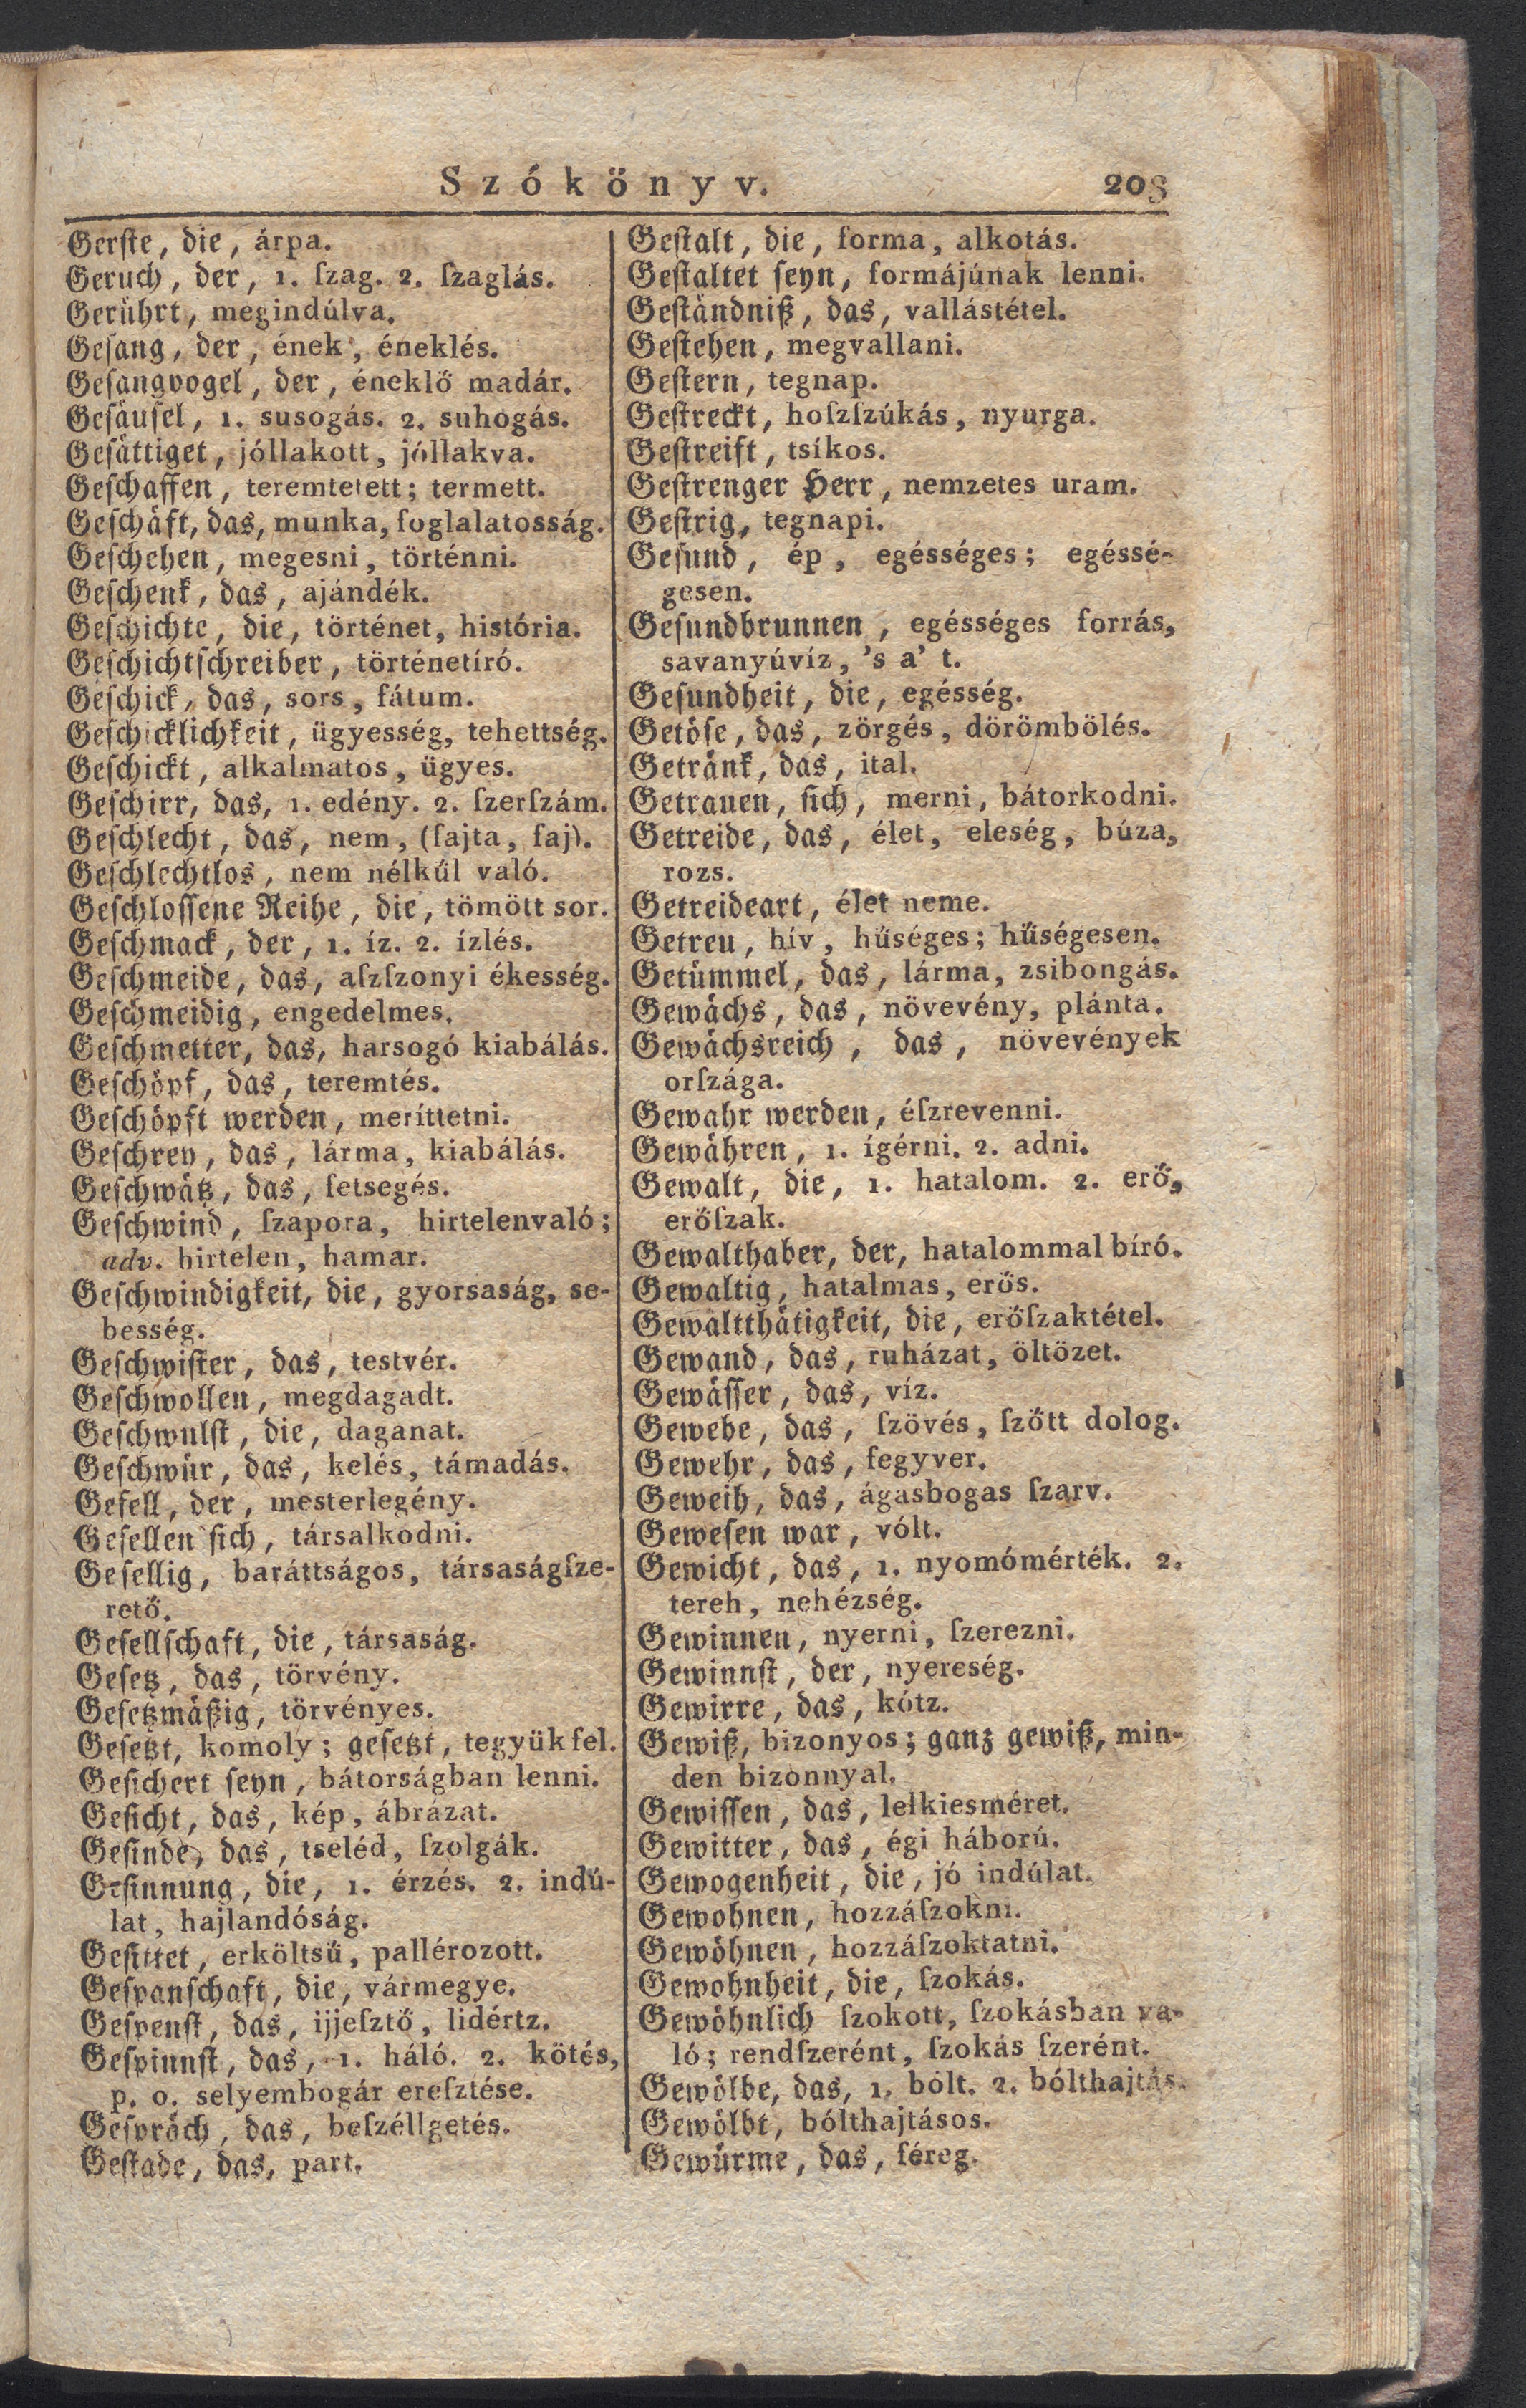 Szókönyv. 203
Gerſte, die, árpa.
Geruch, der, 1. ſzag. 2. ſzaglás.
Gerührt, megindúlva.
Geſang, der, ének, éneklés.
Geſangvogel, der, éneklő madár.
Geſäuſel, 1. susogás. 2. suhogás.
Geſättiget, jóllakott, jóllakva.
Geſchaffen, teremtetett; termett.
Geſchäft, das, munka, foglalatosság.
Geſchehen, megesni, történni.
Geſchenk, das, ajándék.
Geſchichte, die, történet, história.
Geſchichtſchreiber, történetíró.
Geſchick, das, sors, fátum.
Geſchicklichkeit, ügyesség, tehettség.
Geſchickt, alkalmatos, ügyes.
Geſchirr, das, 1. edény. 2. ſzerſzám.
Geſchlecht, das, nem, (fajta, faj).
Geſchlechtlos, nem nélkűl való.
Geſchloſſene Reihe, die, tömött sor.
Geſchmack, der, 1. íz. 2. ízlés.
Geſchmeide, das, aſzſzonyi ékesség.
Geſchmeidig, engedelmes.
Geſchmetter, das, harsogó kiabálás.
Geſchöpf, das, teremtés.
Geſchöpft werden, meríttetni.
Geſchrey, das, lárma, kiabálás.
Geſchwätz, das, fetsegés.
Geſchwind, ſzapora, hirtelenvaló;
adv. hirtelen, hamar.
Geſchwindigkeit, die, gyorsaság, se-
besség.
Geſchwiſter, das, testvér.
Geſchwollen, megdagadt.
Geſchwulſt, die, daganat.
Geſchwür, das, kelés, támadás.
Geſell, der, mesterlegény.
Geſellen ſich, társalkodni.
Geſellig, baráttságos, társaságſze-
rető.
Geſellſchaft, die, társaság.
Geſetz, das, törvény.
Geſetzmäßig, törvényes.
Geſetzt, komoly; geſetzt, tegyük fel.
Geſichert ſeyn, bátorságban lenni.
Geſicht, das, kép, ábrázat.
Geſinde, das, tseléd, ſzolgák.
Geſinnung, die, 1. érzés. 2. indú-
lat, hajlandóság.
Geſittet, erköltsű, pallérozott.
Geſpanſchaft, die, vármegye.
Geſpenſt, das, ijjeſztő, lidértz.
Geſpinnſt, das, 1. háló. 2. kötés,
p. o. selyembogár ereſztése.
Geſpräch, das, beſzéllgetés.
Geſtade, das, part.
Geſtalt, die, forma, alkotás.
Geſtaltet ſeyn, formájúnak lenni.
Geſtändniß, das, vallástétel.
Geſtehen, megvallani.
Geſtern, tegnap.
Geſtreckt, hoſzſzúkás, nyurga.
Geſtreift, tsíkos.
Geſtrenger Herr, nemzetes uram.
Geſtrig, tegnapi.
Geſund, ép, egésséges; egéssé-
gesen.
Geſundbrunnen, egésséges forrás,
savanyúvíz, 's a' t.
Geſundheit, die, egésség.
Getöſe, das, zörgés, dörömbölés.
Getränk, das, ital.
Getrauen, ſich, merni, bátorkodni.
Getreide, das, élet, eleség, búza,
rozs.
Getreideart, élet neme.
Getreu, hív, hűséges; hűségesen.
Getümmel, das, lárma, zsibongás.
Gewächs, das, növevény, plánta.
Gewächsreich, das, növevények
orſzága.
Gewahr werden, éſzrevenni.
Gewähren, 1. ígérni. 2. adni.
Gewalt, die, 1. hatalom. 2. erő,
erőſzak.
Gewalthaber, der, hatalommal bíró.
Gewaltig, hatalmas, erős.
Gewaltthätigkeit, die, erőſzaktétel.
Gewand, das, ruházat, öltözet.
Gewäſſer, das, víz.
Gewebe, das, ſzövés, ſzőtt dolog.
Gewehr, das, fegyver.
Geweih, das, ágasbogas ſzarv.
Geweſen war, vólt.
Gewicht, das, 1. nyomómérték. 2.
tereh, nehézség.
Gewinnen, nyerni, ſzerezni.
Gewinnſt, der, nyereség.
Gewirre, das, kótz.
Gewiß, bizonyos; ganz gewiß, min-
den bizonnyal.
Gewiſſen, das, lelkiesméret.
Gewitter, das, égi háború.
Gewogenheit, die, jó indúlat.
Gewohnen, hozzáſzokni.
Gewöhnen, hozzáſzoktatni.
Gewohnheit, die, ſzokás.
Gewöhnlich ſzokott, ſzokásban va-
ló; rendſzerént, ſzokás ſzerént.
Gewölbe, das, 1. bólt. 2. bólthajtás.
Gewölbt, bólthajtásos.
Gewürme, das, féreg.